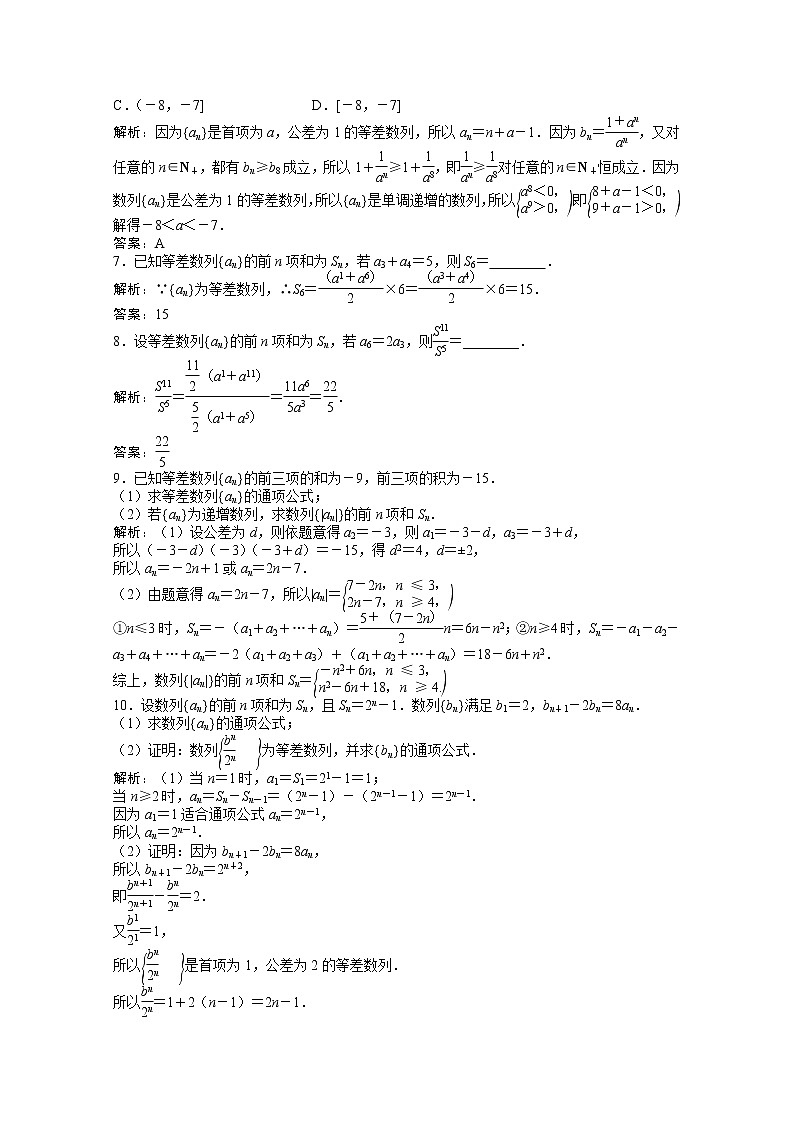 C.(-8,-7]　　　D.[-8,-7]
解析:因为{aₙ}是首项为a,公差为1的等差数列,所以aₙ=n+a-1.因为bₙ=(1+aⁿ)/aⁿ,又对
任意的n∈N₊,都有bₙ≥b₈成立,所以1+1/aⁿ≥1+1/a⁸,即1/aⁿ≥1/a⁸对任意的n∈N₊恒成立.因为
数列{aₙ}是公差为1的等差数列,所以{aₙ}是单调递增的数列,所以{a⁸<0, a⁹>0,)即{8+a-1<0, 9+a-1>0,)
解得-8<a<-7.
答案:A
7.已知等差数列{aₙ}的前n项和为Sₙ,若a₃+a₄=5,则S₆=________.
解析:∵{aₙ}为等差数列,∴S₆=(a¹+a⁶)/2×6=(a³+a⁴)/2×6=15.
答案:15
8.设等差数列{aₙ}的前n项和为Sₙ,若a₆=2a₃,则S¹¹/S⁵=________.
解析:S¹¹/S⁵=11/2(a¹+a¹¹)/5/2(a¹+a⁵)=11a⁶/5a³=22/5.
答案:22/5
9.已知等差数列{aₙ}的前三项的和为-9,前三项的积为-15.
(1)求等差数列{aₙ}的通项公式;
(2)若{aₙ}为递增数列,求数列{|aₙ|}的前n项和Sₙ.
解析:(1)设公差为d,则依题意得a₂=-3,则a₁=-3-d,a₃=-3+d,
所以(-3-d)(-3)(-3+d)=-15,得d²=4,d=±2,
所以aₙ=-2n+1或aₙ=2n-7.
(2)由题意得aₙ=2n-7,所以|aₙ|={7-2n,n ≤ 3, 2n-7,n ≥ 4,)
①n≤3时,Sₙ=-(a₁+a₂+…+aₙ)=5+(7-2n)/2 n=6n-n²;②n≥4时,Sₙ=-a₁-a₂-
a₃+a₄+…+aₙ=-2(a₁+a₂+a₃)+(a₁+a₂+…+aₙ)=18-6n+n².
综上,数列{|aₙ|}的前n项和Sₙ={-n²+6n,n ≤ 3, n²-6n+18,n ≥ 4.)
10.设数列{aₙ}的前n项和为Sₙ,且Sₙ=2ⁿ-1.数列{bₙ}满足b₁=2,bₙ₊₁-2bₙ=8aₙ.
(1)求数列{aₙ}的通项公式;
(2)证明:数列{bⁿ/2ⁿ}为等差数列,并求{bₙ}的通项公式.
解析:(1)当n=1时,a₁=S₁=2¹-1=1;
当n≥2时,aₙ=Sₙ-Sₙ₋₁=(2ⁿ-1)-(2ⁿ⁻¹-1)=2ⁿ⁻¹.
因为a₁=1适合通项公式aₙ=2ⁿ⁻¹,
所以aₙ=2ⁿ⁻¹.
(2)证明:因为bₙ₊₁-2bₙ=8aₙ,
所以bₙ₊₁-2bₙ=2ⁿ⁺²,
即bⁿ⁺¹/2ⁿ⁺¹-bⁿ/2ⁿ=2.
又b¹/2¹=1,
所以{bⁿ/2ⁿ}是首项为1,公差为2的等差数列.
所以bⁿ/2ⁿ=1+2(n-1)=2n-1.